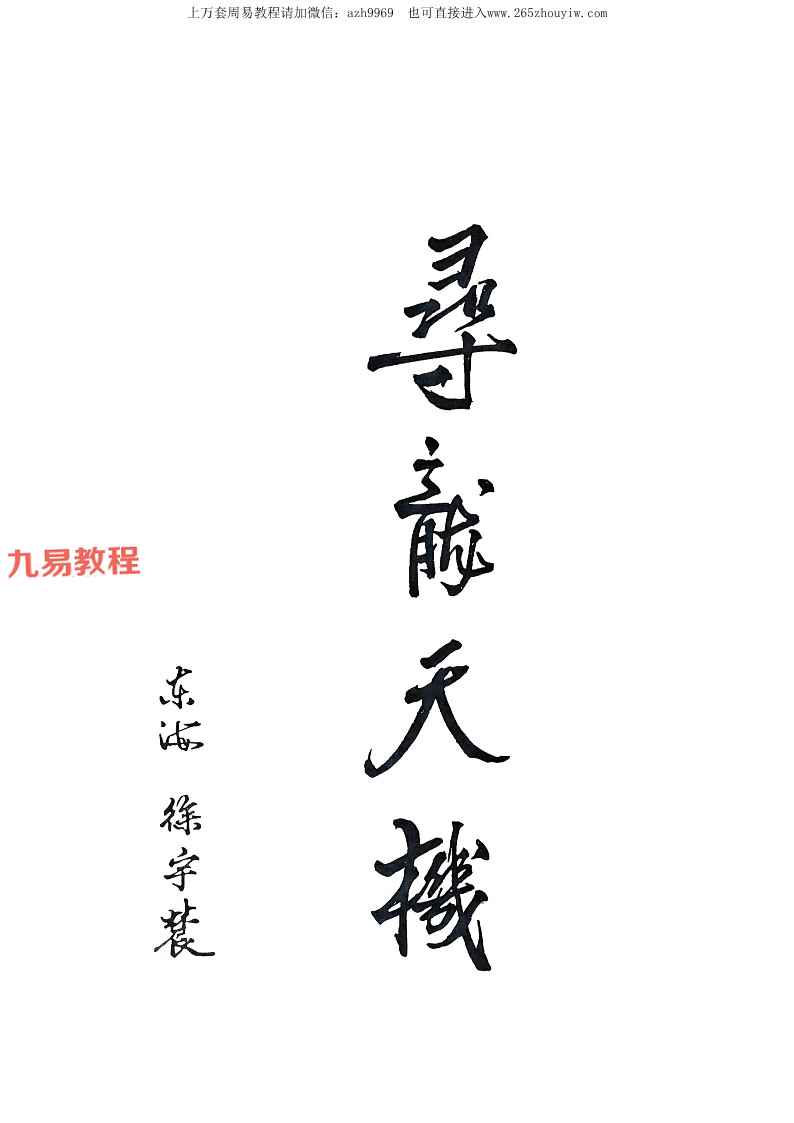 上万套周易教程请加微信：azh9969 也可直接进入www.265zhouyiw.com
尋龍天機
九易教程
东海 徐宇辳